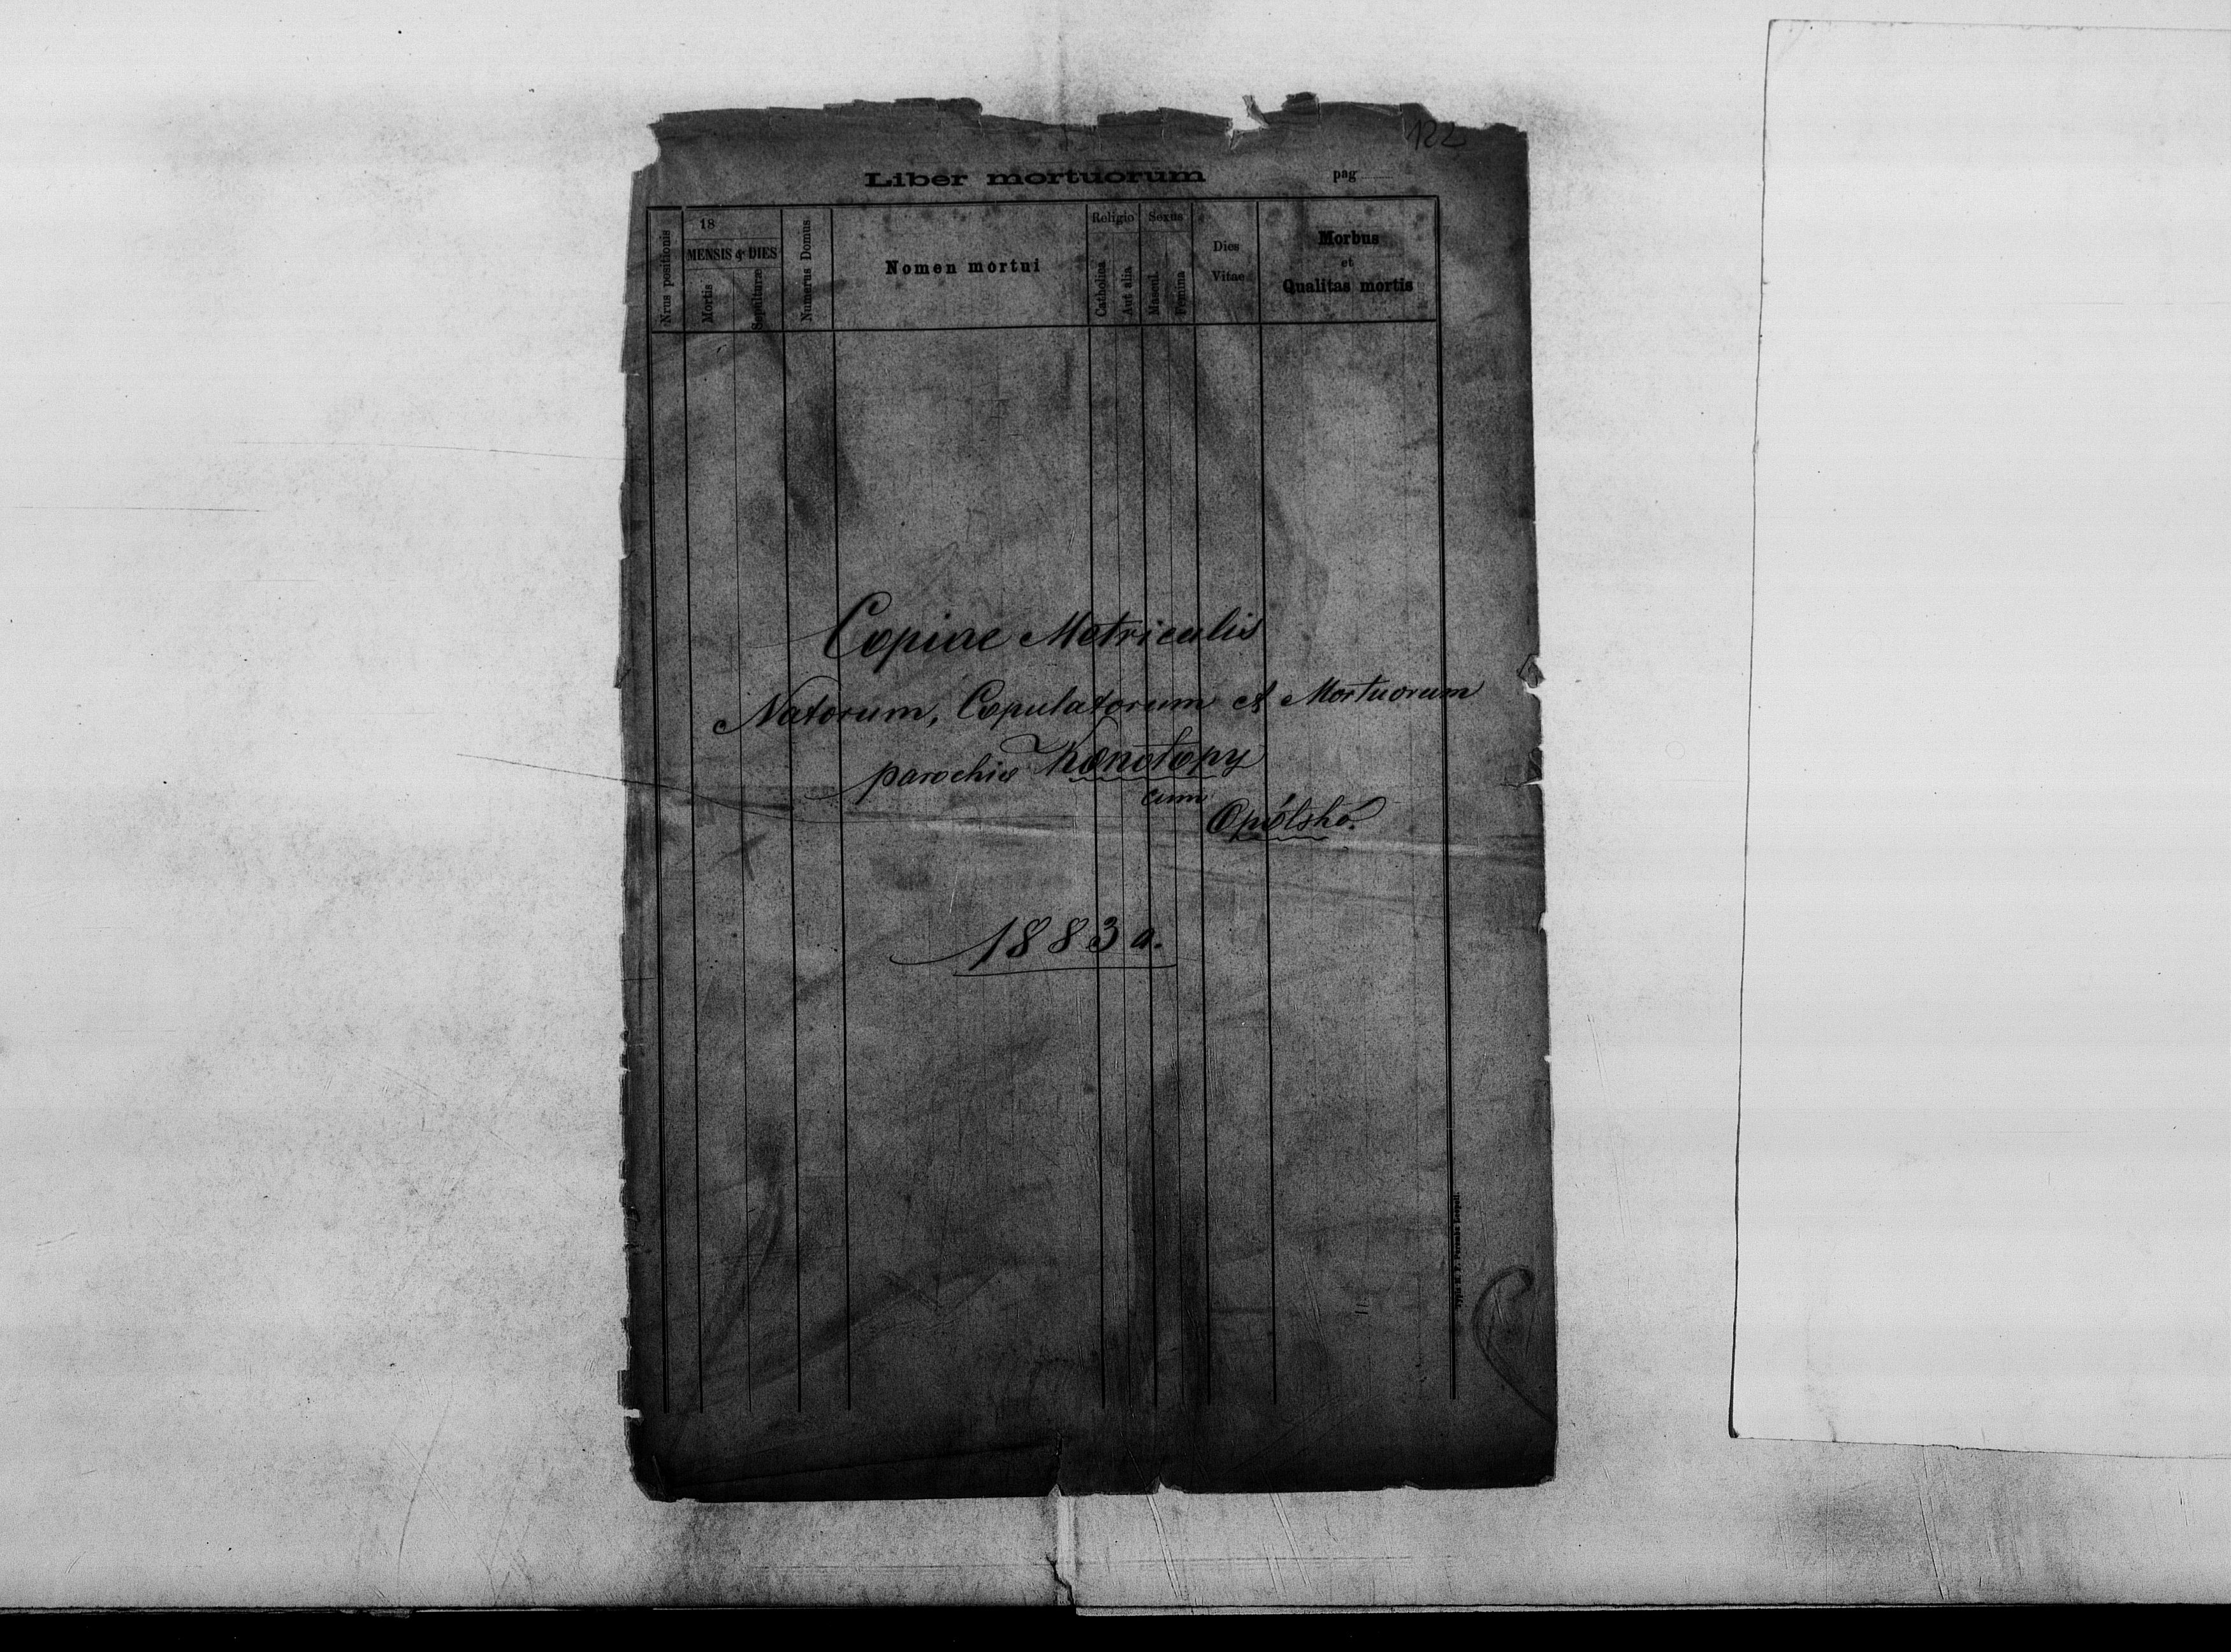 122
Liber mortuorum
pag
Nrus positionis
18
MENSIS & DIES
Mortis
Sepulturæ
Numerus Domus
Nomen mortui
Religio
Catholica
Aut alia
Sexus
Mascul.
Femina
Dies
Vitae
Morbus
et
Qualitas mortis
Copiae Metricalis
Natorum, Copulatorum et Mortuorum
parochia Konotopy
cum
Opólsko.
1883 a.